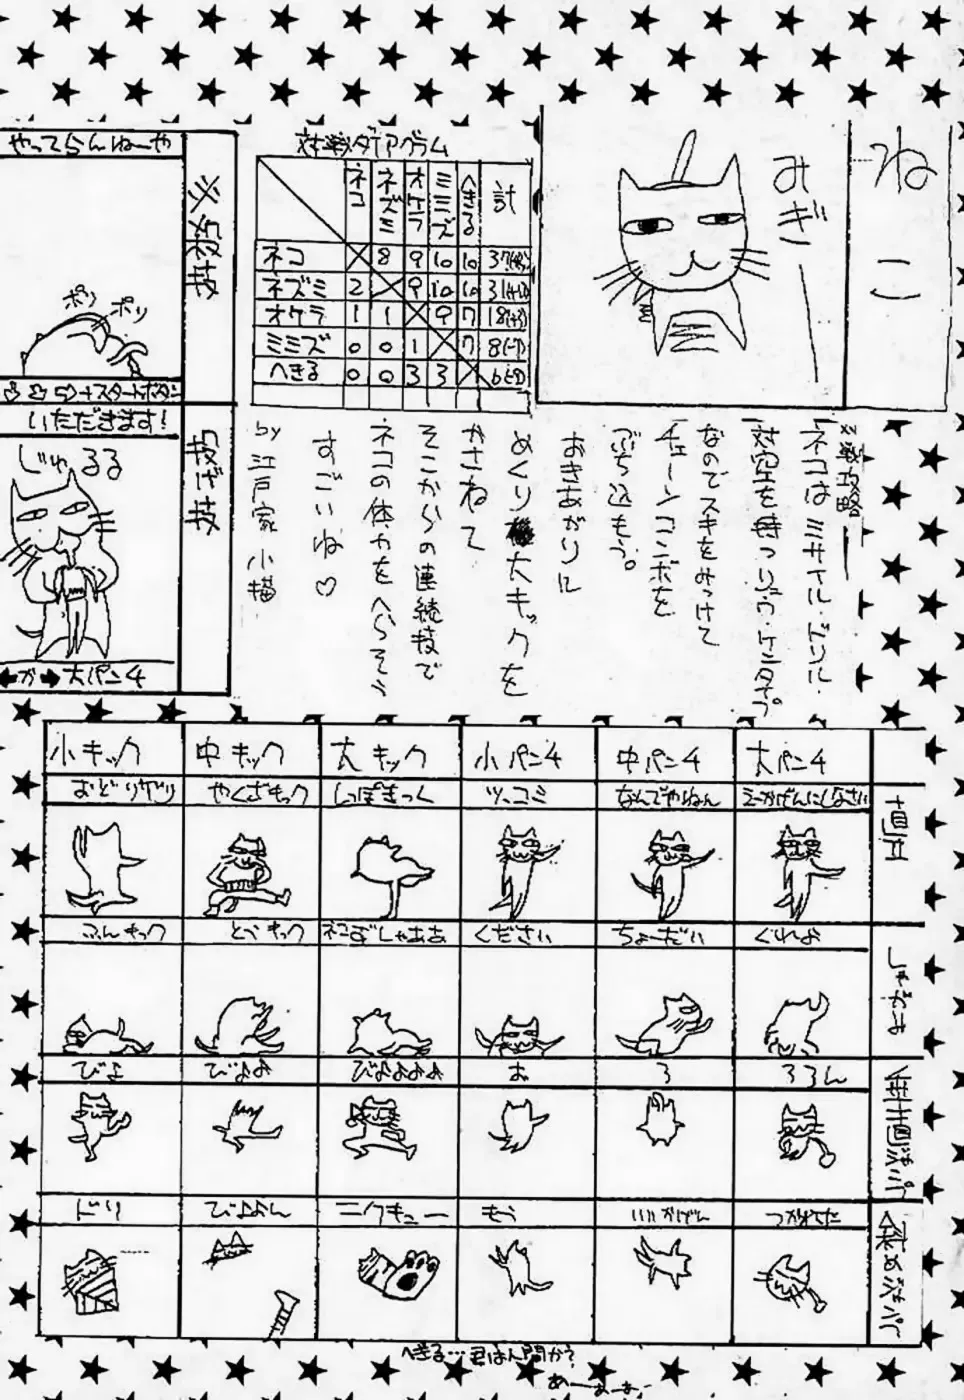 ねこ
みぎー
対戦ダイアグラム
ネコ ネズミ オケラ ミミズ へきる 計
ネコ 8 9 10 10 37
ネズミ 2 9 10 10 31
オケラ 1 1 9 7 18
ミミズ 0 0 1 7 8
へきる 0 0 3 3 6
必殺技
やってらんねーや
ポリ ポリ
+スタートボタン
投げ技
いただきます!
じゅるる
←か→大パンチ
※戦攻略
ネコはミサイル・ドリル・
対空を持つリュウ・ケンタイプ
なのでスキをみつけて
チェーンコンボを
ぶち込もう。
おきあがりに
めくり大キックを
かさねて
そこからの連続技で
ネコの体力をへらそう
すごいね♡
by 江戸家小猫
小キック 中キック 大キック 小パンチ 中パンチ 大パンチ
直立
おどりゃり やくざキック しっぽきっく ツッコミ なんでやねん えーかげんにしなさい
しゃがみ
ふんキック とぺキック ネコずしゃああ ください ちょーだい ぐれよ
垂直ジャンプ
びよ びよよ びよよよよ お ろ ろろん
斜めジャンプ
ドリ びよよん ニクキュー もう いいかげん つかれてた
へきる…君は人間か?
あーあぁ